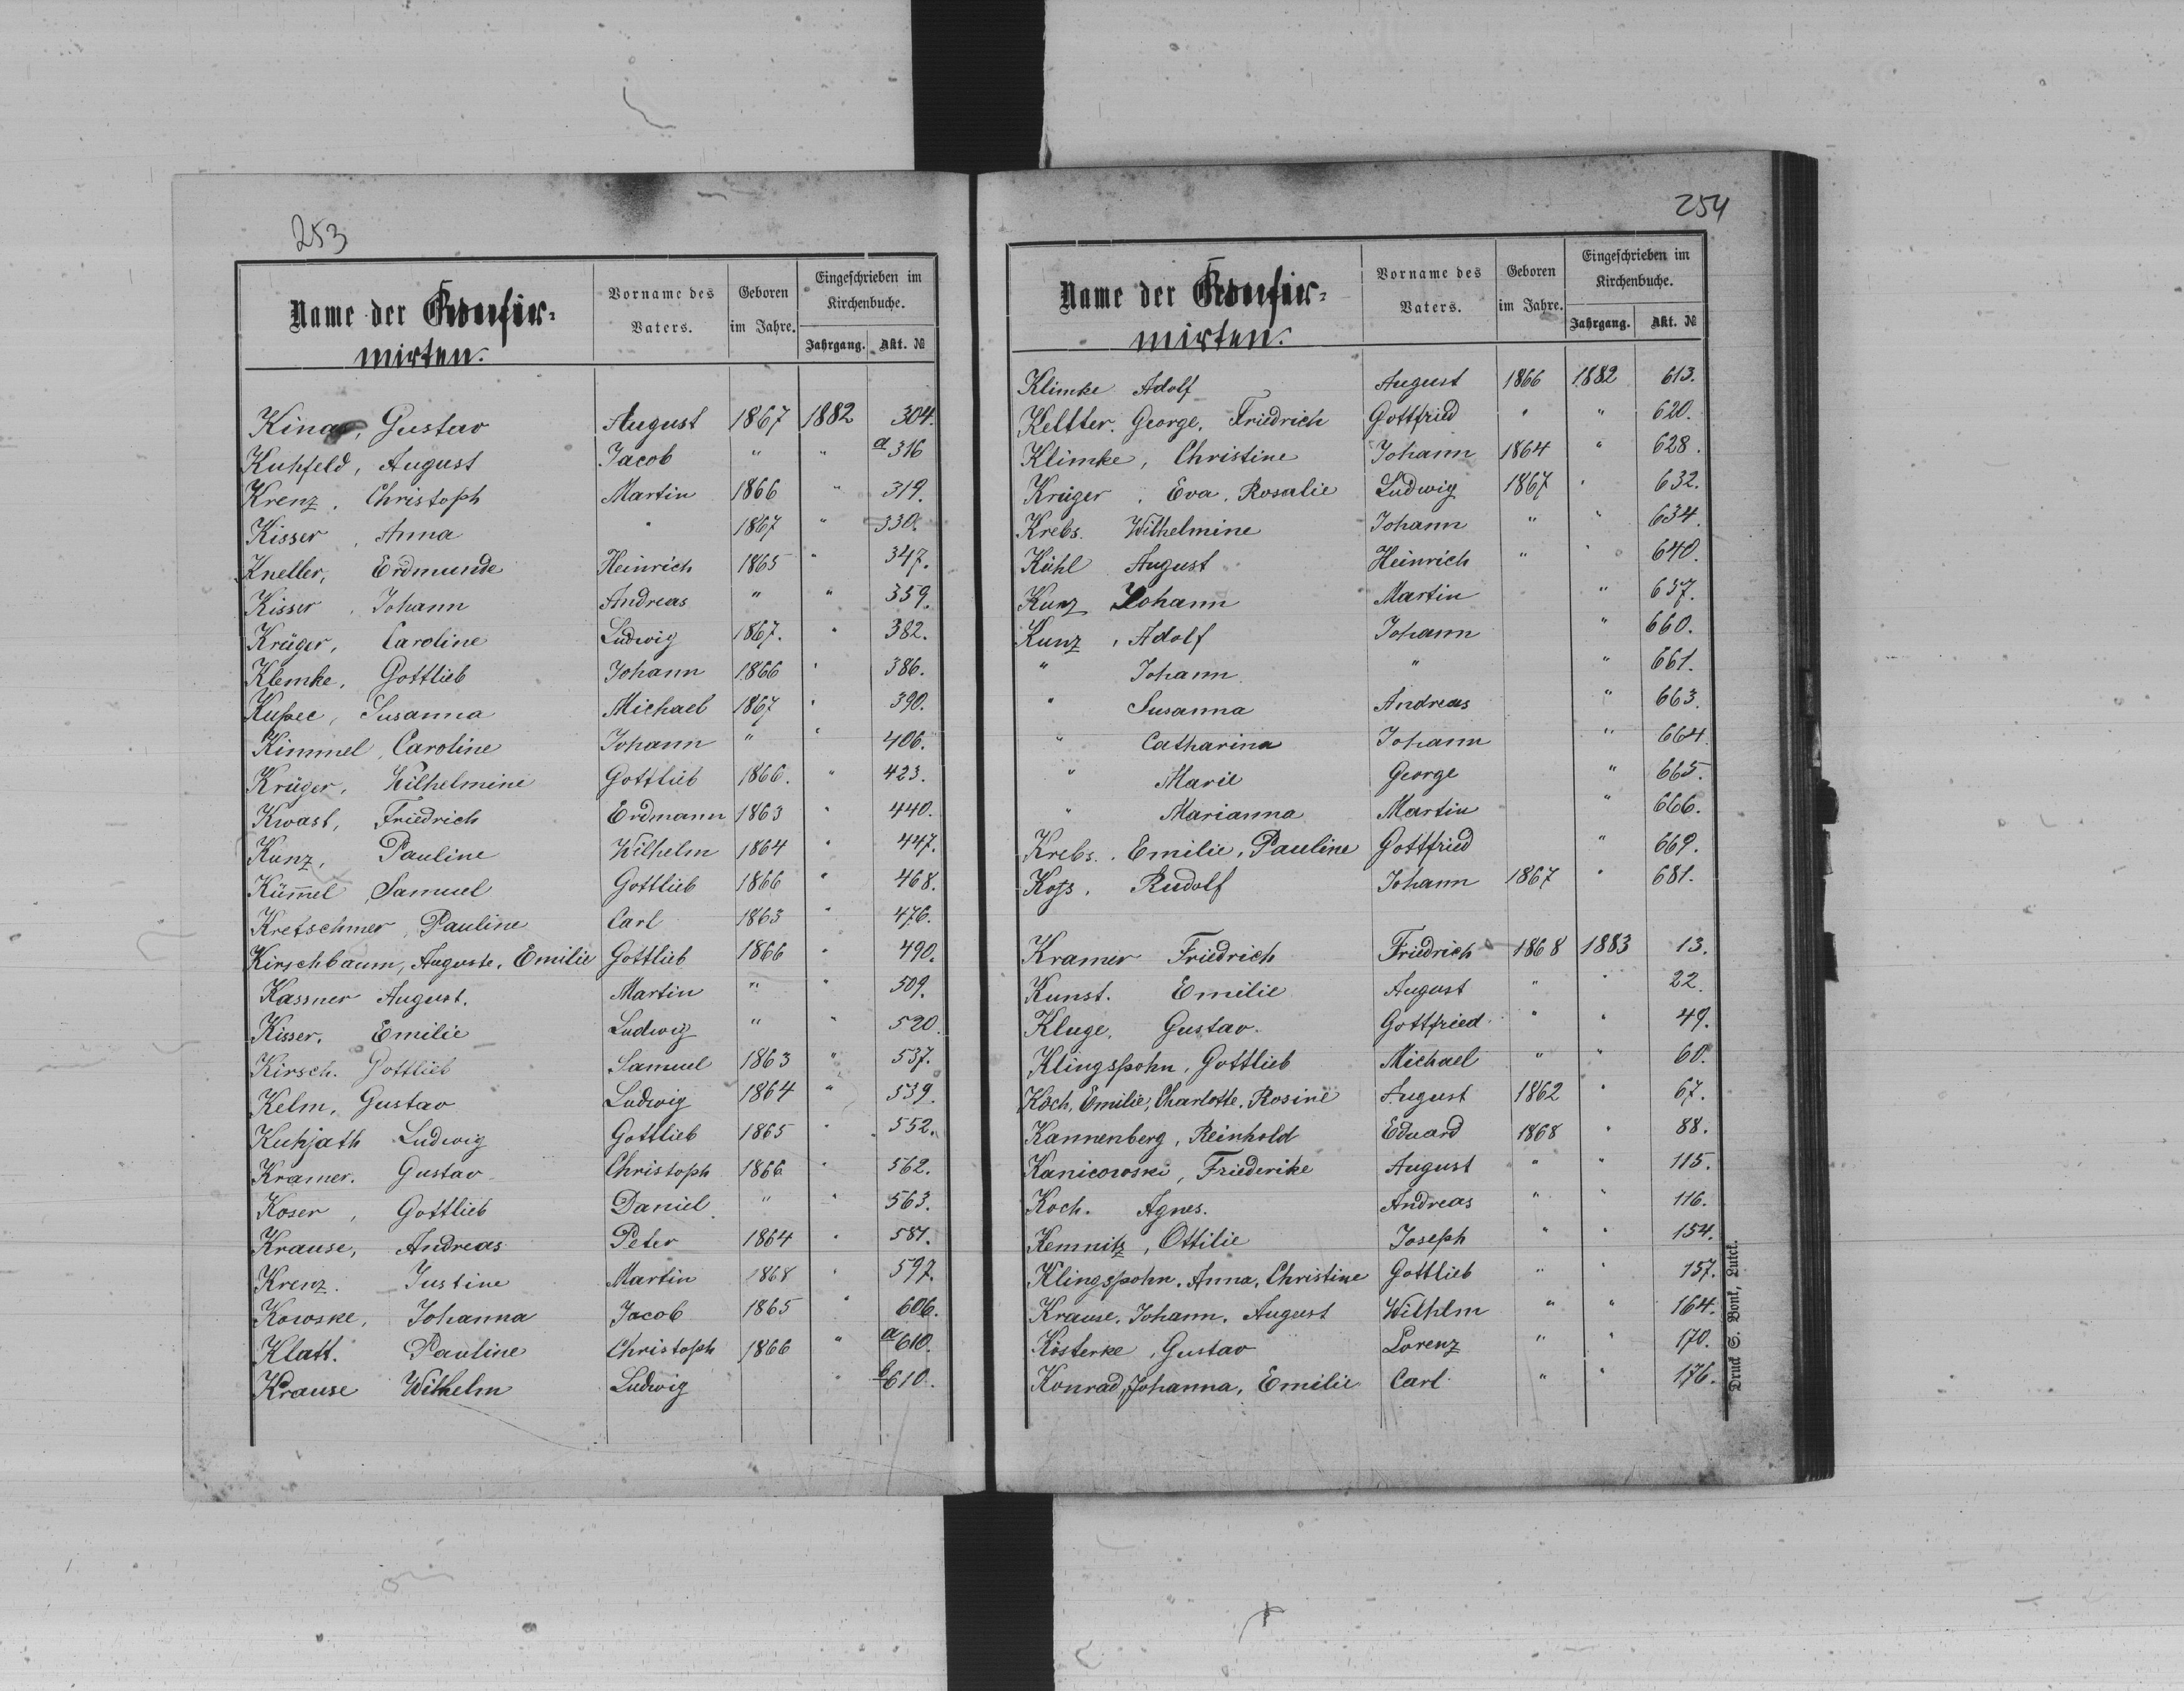 253
Name der Konfir-
mirten.
Vorname des
Vaters.
Geboren
im Jahre.
Eingeschrieben im
Kirchenbuche.
Jahrgang. Akt. №
Kinas, Gustav August 1867 1882 304.
Kuhfeld, August Jacob " " a 316
Krenz, Christoph Martin 1866 " 319.
Kisser, Anna " 1867 " 330.
Kneller, Erdmunde Heinrich 1865 " 347.
Kisser, Johann Andreas " " 359.
Krüger, Caroline Ludwig 1867. " 382.
Klemke, Gottlieb Johann 1866 " 386.
Susanna Michael 1867 " 390.
Kimmel, Caroline Johann " " 406.
Krüger, Wilhelmine Gottlieb 1866. " 423.
Kwast, Friedrich Erdmann 1863 " 440.
Kunz, Pauline Wilhelm 1864 " 447.
Küm̄el, Samuel Gottlieb 1866 " 468.
Kretschmer, Pauline Carl 1863 " 476.
Kirschbaum, Auguste, Emilie Gottlieb 1866 " 490.
Kassner August. Martin " " 509.
Kisser, Emilie Ludwig " " 520.
Kirsch. Gottlieb Samuel 1863 " 537.
Kelm, Gustav Ludwig 1864 " 539.
Kuhjath Ludwig Gottlieb 1865 " 552.
Kramer. Gustav Christoph 1866 " 562.
Koser, Gottlieb Daniel " " 563.
Krause, Andreas Peter 1864 " 587.
Krenz. Justine Martin 1868 " 597.
Kowske, Johanna Jacob 1865 " 606.
Klatt. Pauline Christoph 1866 " a 610.
Krause Wilhelm Ludwig " b 610.
254
Name der Konfir-
mirten.
Vorname des
Vaters.
Geboren
im Jahre.
Eingeschrieben im
Kirchenbuche.
Jahrgang. Akt. №
Klimke Adolf August 1866 1882 613.
Keltter. George, Friedrich Gottfried " " 620.
Klimke, Christine Johann 1864 " 628.
Krüger, Eva, Rosalie Ludwig 1867 " 632.
Krebs. Wilhelmine Johann " " 634.
Kühl August Heinrich " " 640.
Kunz Johann Martin " 657.
Kunz, Adolf Johann " 660.
" Johann " " 661.
" Susanna Andreas " 663.
" Catharina Johann " 664.
" Marie George " 665.
" Marianna Martin " 666.
Krebs. Emilie, Pauline Gottfried " 669.
Koss, Rudolf Johann 1867 " 681.
Kramer Friedrich Friedrich 1868 1883 13.
Kunst. Emilie August " " 22.
Kluge, Gustav. Gottfried " " 49.
Klingspohn, Gottlieb Michael " " 60.
Koch, Emilie, Charlotte, Rosine August 1862 " 67.
Kannenberg, Reinhold Eduard 1868 " 88.
Kanicowski, Friederike August " " 115.
Koch. Agnes. Andreas " " 116.
Kemnitz, Ottilie Joseph " " 154.
Klingspohn, Anna, Christine Gottlieb " " 157.
Krause, Johann, August Wilhlm " " 164.
Kösterke, Gustav Lorenz " " 170.
Konrad, Johanna, Emilie Carl " " 176.
Druck S. Bonk, Lutck.